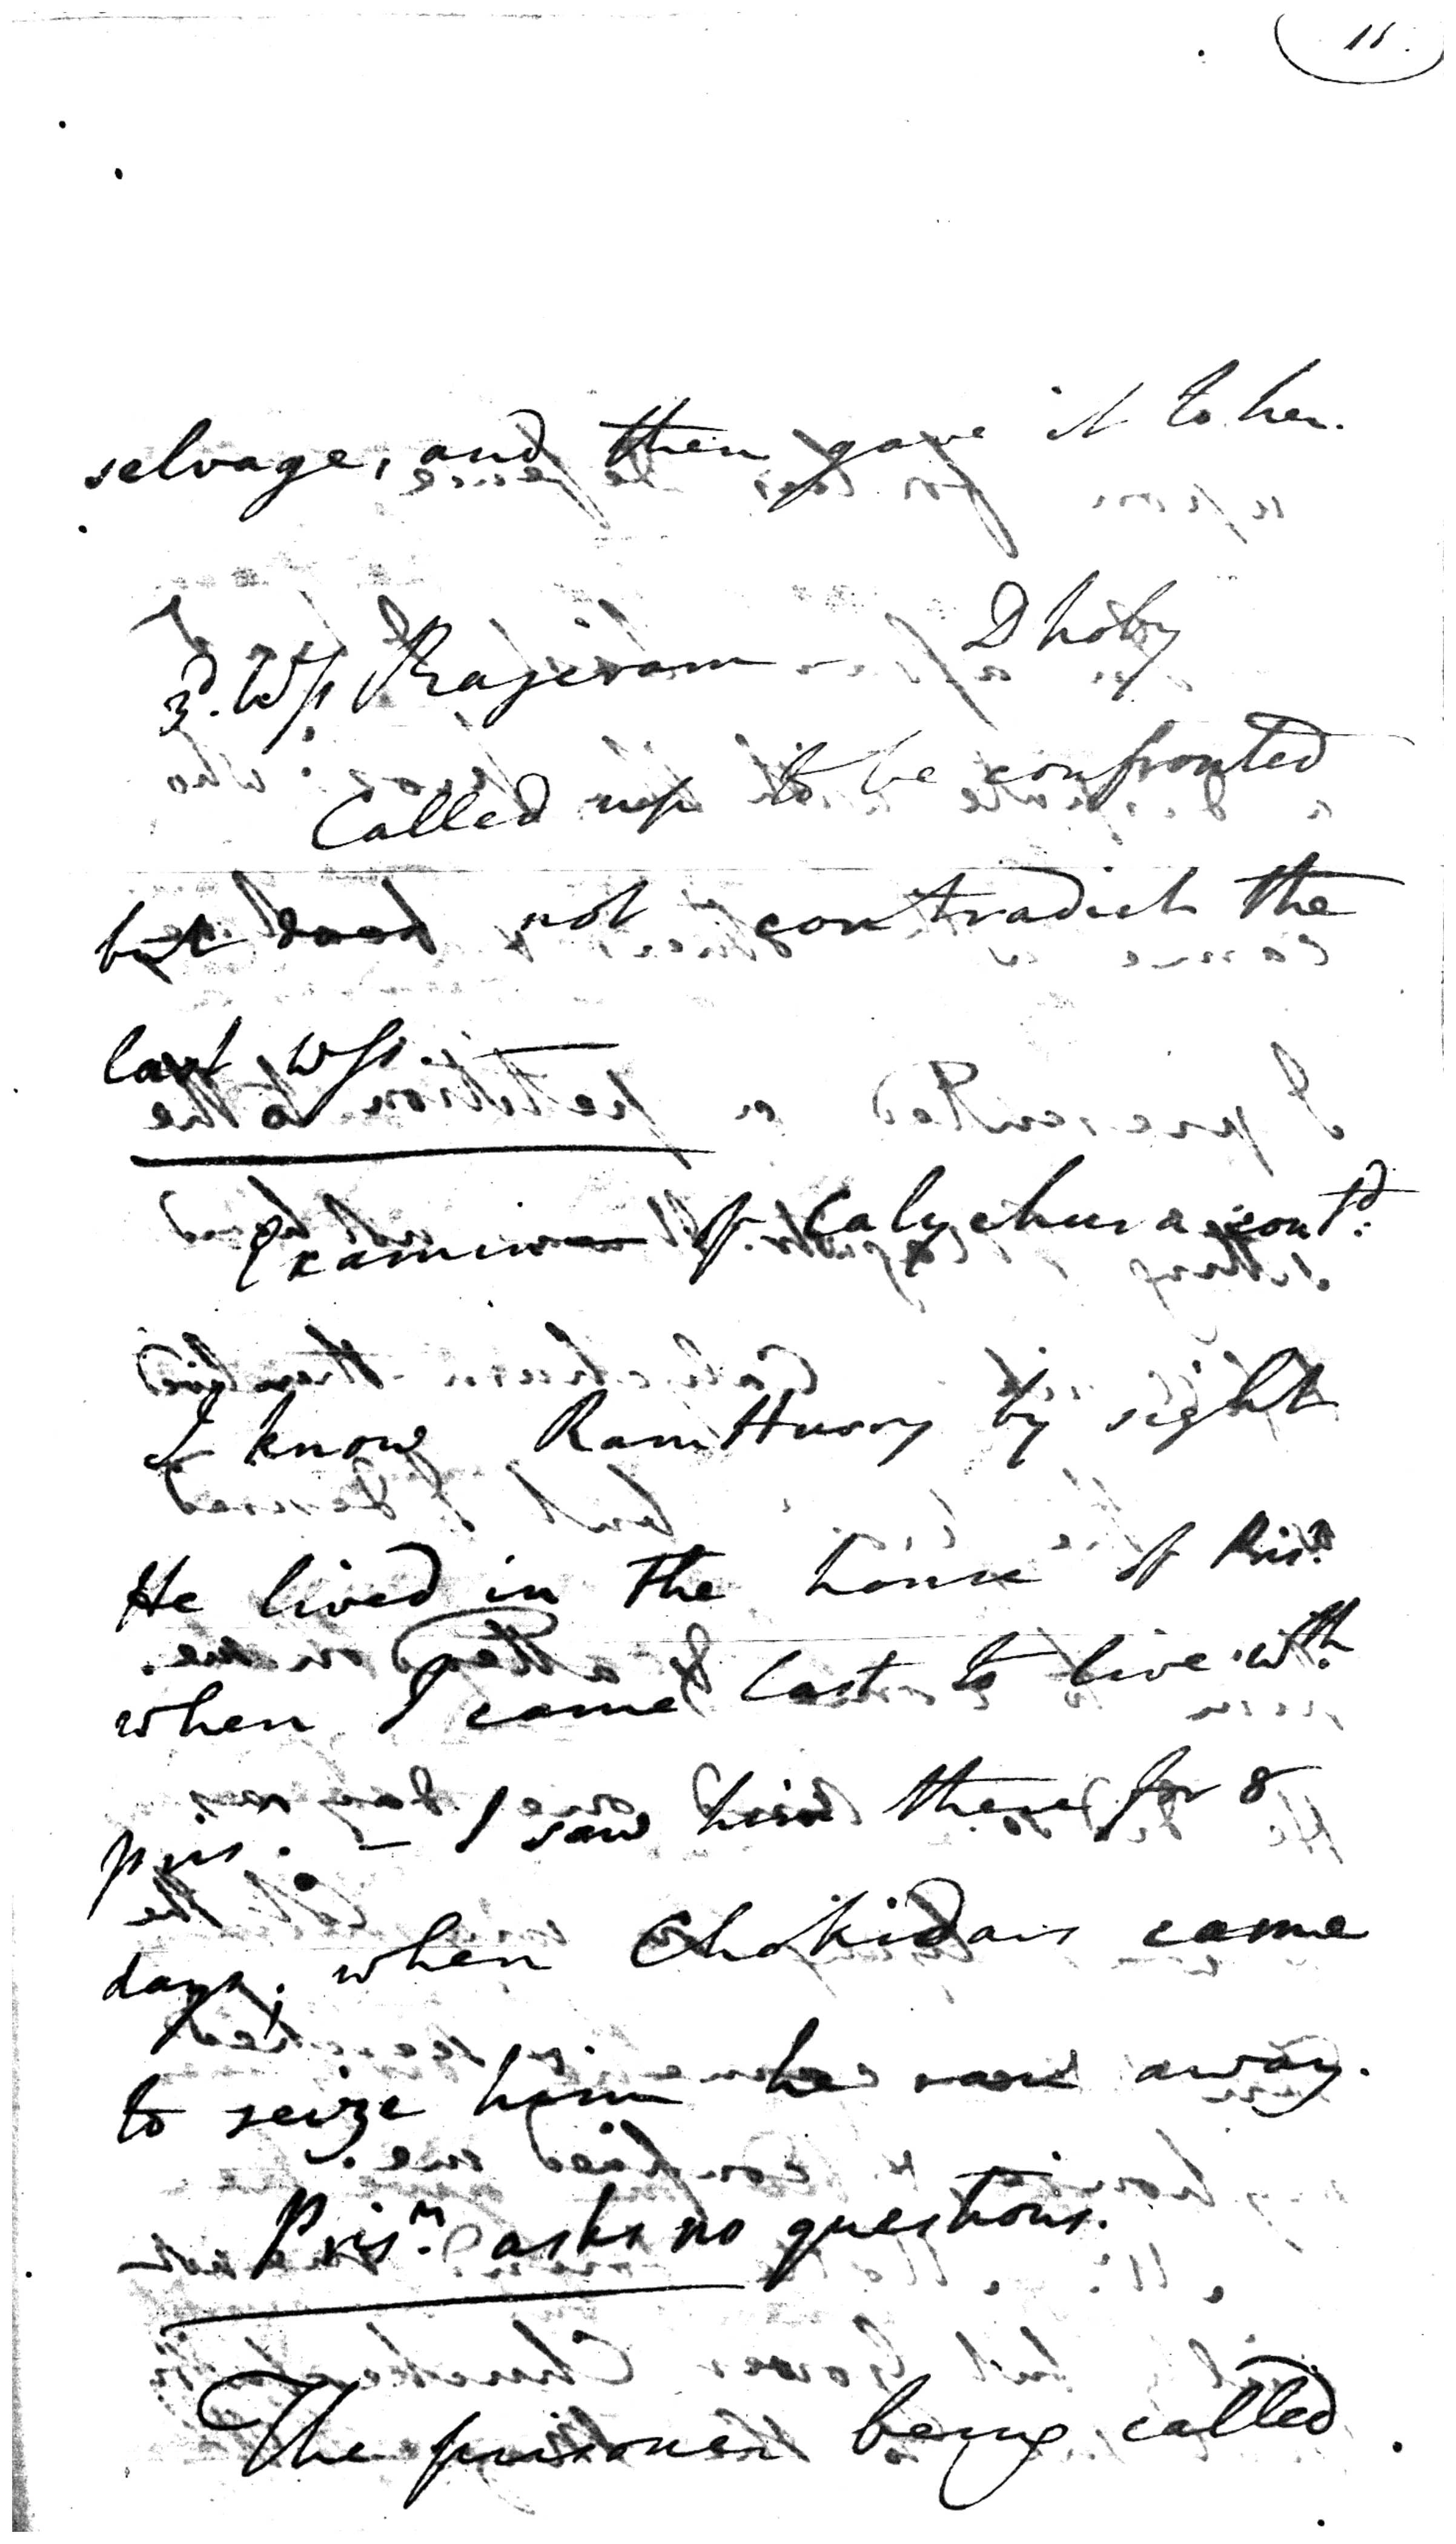 11.
selvage, and then gave it to her.
3.d Ws Rajeeram Dhoby
Called up to be confronted
but does not contradict the
last Ws.
Examin of Calychurn cont.d
I know Ram Hurry by sight
He lived in the house of Pris.r
when I came last to live w.th
pris. – I saw him there for 8
days, when Chokidars came
to seize him he ran away.
Pris.r asks no questions.
The prisoner being called